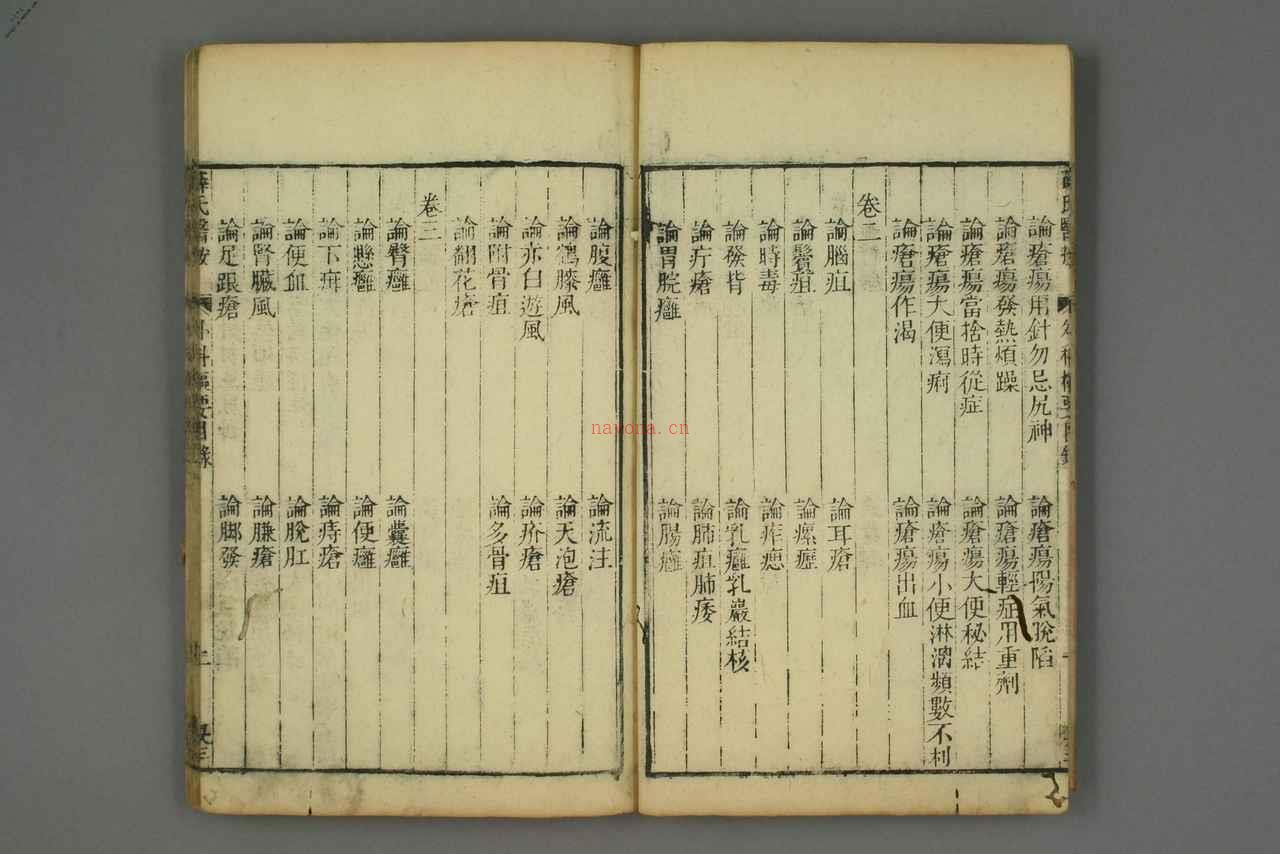 論瘡瘍用針勿忌尻神
論瘡瘍陽氣脫陷
論瘡瘍發熱煩躁
論瘡瘍輕症用重劑
論瘡瘍當捨時從症
論瘡瘍大便秘結
論瘡瘍大便瀉痢
論瘡瘍小便淋漓頻數不利
論瘡瘍作渴
論瘡瘍出血
卷二
論腦疽
論耳瘡
論鬢疽
論瘰癧
論時毒
論痄腮
論發背
論乳癰乳巖結核
論疔瘡
論肺疽肺痿
論胃脘癰
論腸癰
論腹癰
論流注
論鶴膝風
論天泡瘡
論赤白遊風
論疥瘡
論附骨疽
論多骨疽
論翻花瘡
卷三
論臀癰
論囊癰
論懸癰
論便癰
論下疳
論痔瘡
論便血
論脫肛
論腎臟風
論臁瘡
論足跟瘡
論腳發
薛氏醫按
外科樞要目錄
nayona.cn